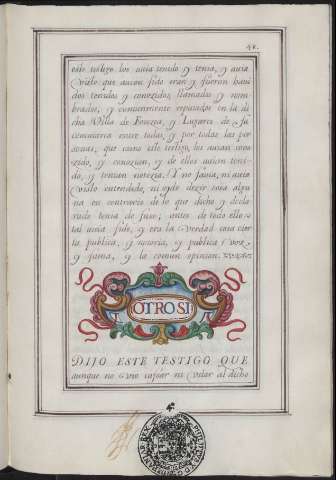 48.
este testigo los auia tenido y tenia, y auia
visto que auian sido eran y fueron haui
dos tenidos y conozidos, llamados y nom
brados, y comunmente reputados en la di
cha Villa de Fonzea, y Lugares de su
comarca entre todas, y por todas las per
sonas, que como este testigo, los auian cono
zido, y conozian, y de ellos auian teni
do, y tenian notizia. Y no sauia, ni auia
visto entendido, ni oydo dezir cosa algu
na en contrario de lo que dicho y decla
rado tenia de suso; antes de todo ello
tal auia sido, y era la Verdad cosa cier
ta publica, y notoria, y publica Voz
y fama, y la comun opinion.
OTRO SI
DIJO ESTE TESTIGO QUE
aunque no vio casar ni velar al dicho